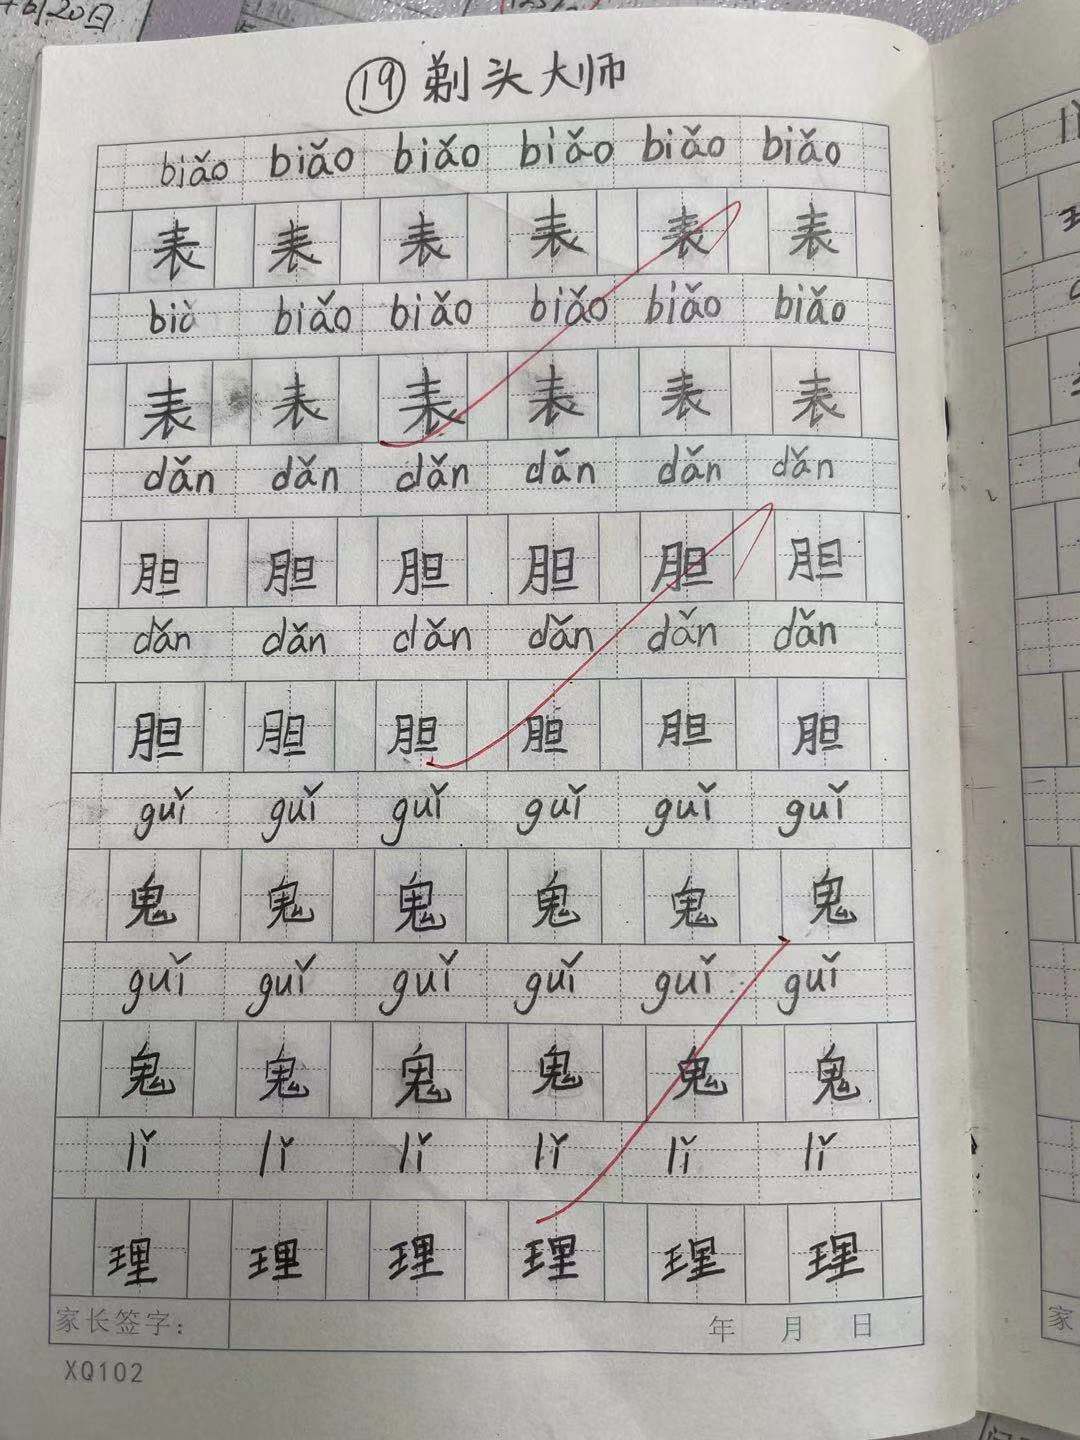 6月20日
⑲ 剃头大师
biǎo biǎo biǎo biǎo biǎo biǎo
表 表 表 表 表 表
biǎo biǎo biǎo biǎo biǎo
表 表 表 表 表 表
dǎn dǎn dǎn dǎn dǎn dǎn
胆 胆 胆 胆 胆 胆
dǎn dǎn dǎn dǎn dǎn dǎn
胆 胆 胆 胆 胆 胆
guǐ guǐ guǐ guǐ guǐ guǐ
鬼 鬼 鬼 鬼 鬼 鬼
guǐ guǐ guǐ guǐ guǐ guǐ
鬼 鬼 鬼 鬼 鬼 鬼
lǐ lǐ lǐ lǐ lǐ lǐ
理 理 理 理 理 理
家长签字： 年 月 日
XQ102
家